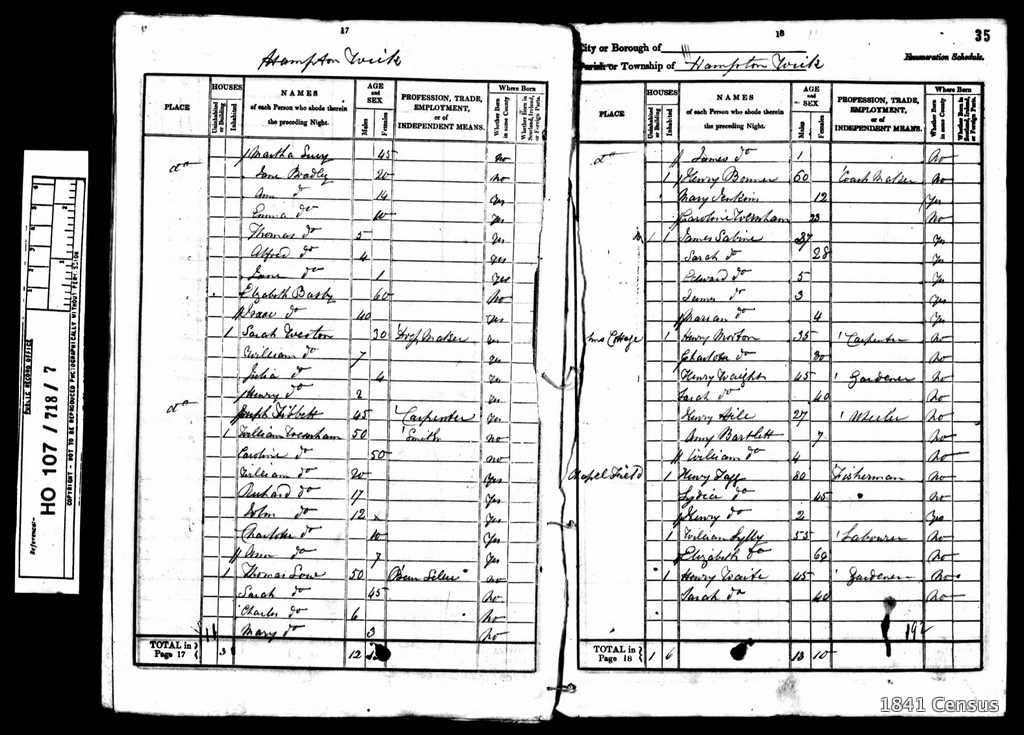 17
Hampton Wick
PLACE
HOUSES
Uninhabited or Building
Inhabited
NAMES
of each Person who abode therein
the preceding Night.
AGE
and
SEX
Males
Females
PROFESSION, TRADE,
EMPLOYMENT,
or of
INDEPENDENT MEANS.
Where Born
Whether Born in same County
Whether Born in Scotland, Ireland, or Foreign Parts.
do Martha 45 No
Jane Bradley 20 No
Ann do 14 Yes
Emma do 10 Yes
Thomas do 5 Yes
Alfred do 4 Yes
Jane do 1 Yes
Elizabeth Busby 60 No
Isaac do 40 Yes
1 Sarah Weston 30 Maker
William do 7 Yes
Julia do 4 Yes
Henry do 2 Yes
do Joseph Tibbett 45 Carpenter Yes
1 William Wernham 50 Smith No
Caroline do 50 No
William do 20 Yes
Richard do 17 Yes
John do 12 Yes
Charlotte do 10 Yes
Ann do 7 Yes
1 Thomas Lowe 50 Beer Seller No
Sarah do 45 No
Charles do 6 No
Mary do 3 No
TOTAL in
Page 17 3 12
18
35
City or Borough of
Parish or Township of Hampton Wick
Enumeration Schedule.
PLACE
HOUSES
Uninhabited or Building
Inhabited
NAMES
of each Person who abode therein
the preceding Night.
AGE
and
SEX
Males
Females
PROFESSION, TRADE,
EMPLOYMENT,
or of
INDEPENDENT MEANS.
Where Born
Whether Born in same County
Whether Born in Scotland, Ireland, or Foreign Parts.
do James do 1 No
1 Henry Bonner 60 Coach Maker No
Mary Jenkins 12 Yes
Caroline Wernham 23 No
1 1 James Sabine 37 Yes
Sarah do 28 Yes
Edward do 5 Yes
James do 3 Yes
Marian do 4 Yes
Cottage 1 Henry Morton 35 Carpenter No
Charlotte do 30 No
Henry Waight 45 Gardener No
Sarah do 40 No
Henry Hile 27 Wheeler No
Amy Bartlett 7 No
William do 4 No
Chapel Field 1 Henry Tagg 60 Fisherman No
Lydia do 45 No
Henry do 2 Yes
1 William Lylly 55 Labourer No
Elizabeth do 60 No
1 Henry Waite 45 Gardener No
Sarah do 40 No
192
TOTAL in
Page 18 1 6 13 10
PUBLIC RECORD OFFICE
Reference:-
HO 107 / 718 / 7
COPYRIGHT - NOT TO BE REPRODUCED PHOTOGRAPHICALLY WITHOUT PERMISSION
1841 Census